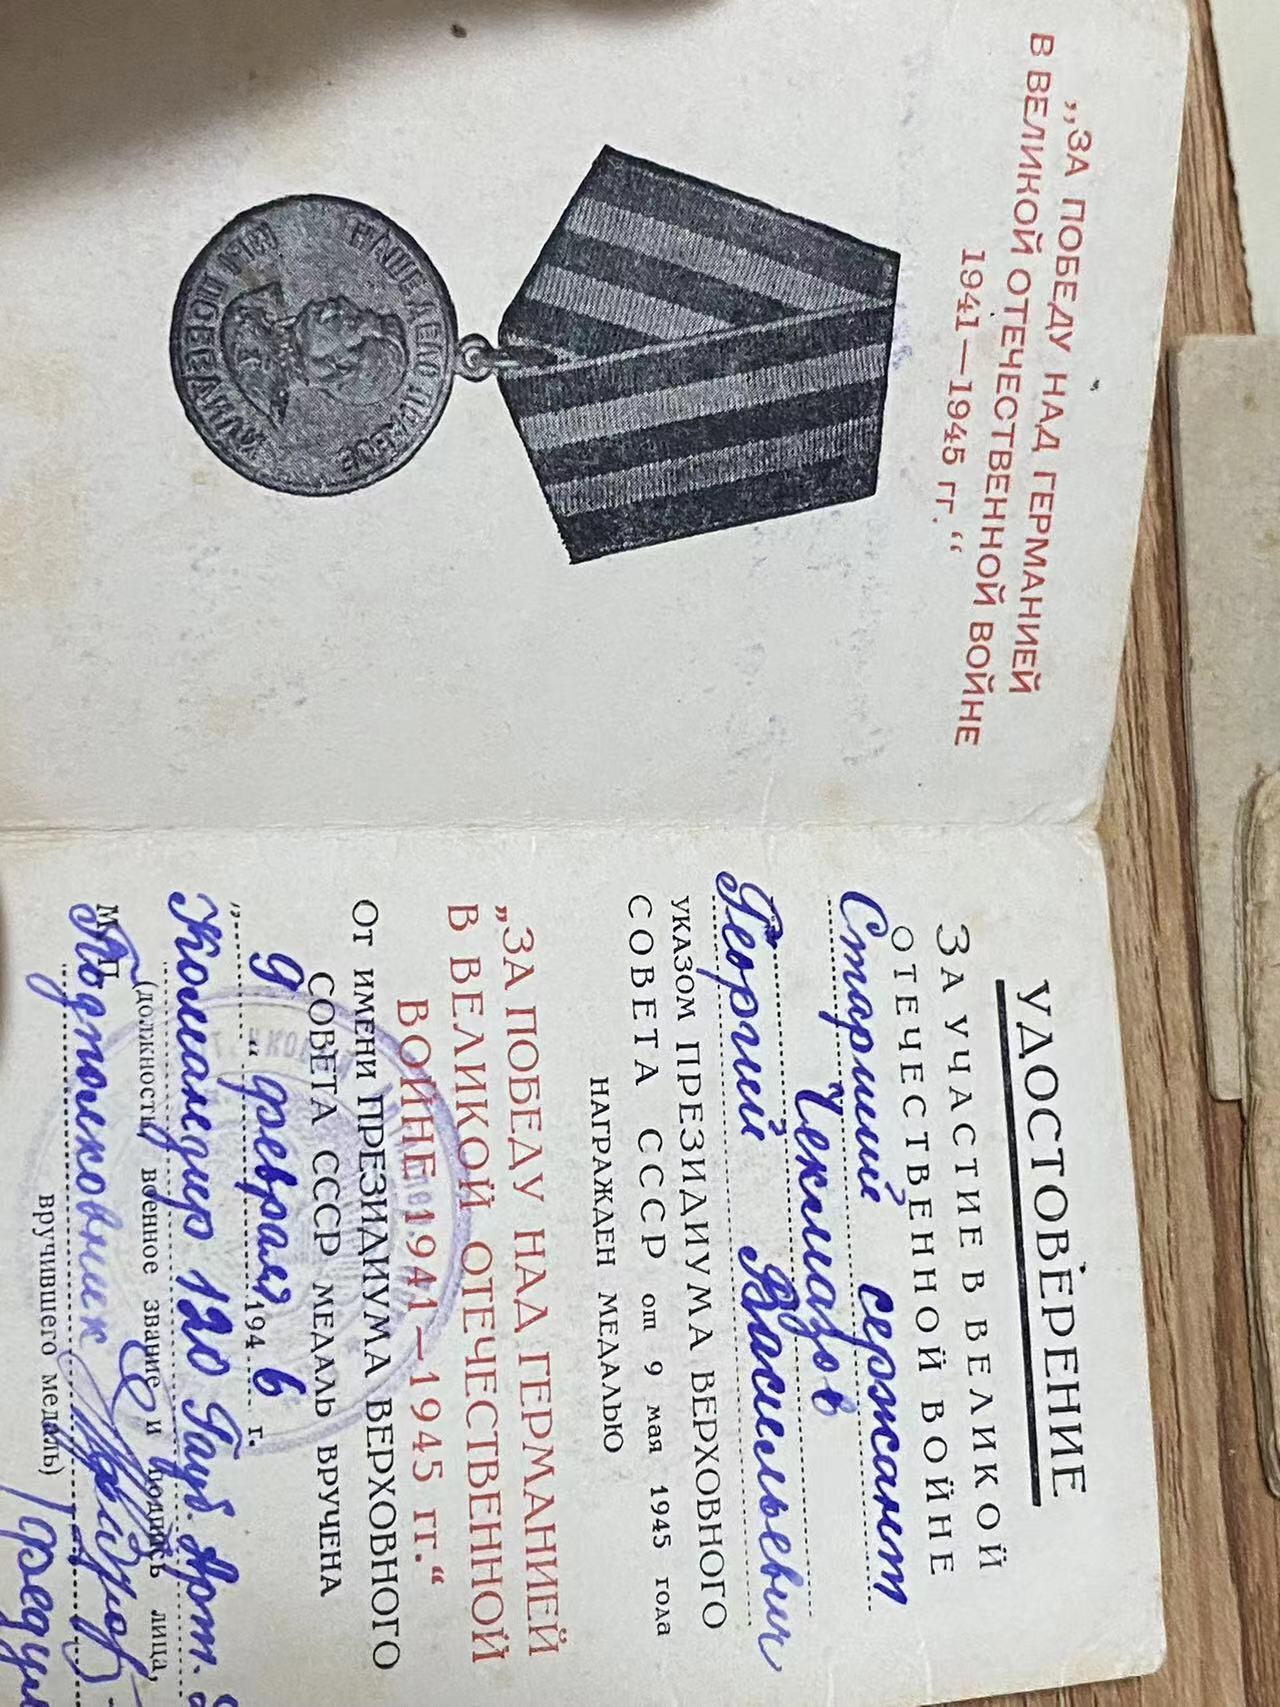 „ЗА ПОБЕДУ НАД ГЕРМАНИЕЙ
В ВЕЛИКОЙ ОТЕЧЕСТВЕННОЙ ВОЙНЕ
1941—1945 гг.“
НАШЕ ДЕЛО ПРАВОЕ
МЫ ПОБЕДИЛИ
УДОСТОВЕРЕНИЕ
ЗА УЧАСТИЕ В ВЕЛИКОЙ
ОТЕЧЕСТВЕННОЙ ВОЙНЕ
Старший сержант
Чекмазов
Георгий Васильевич
УКАЗОМ ПРЕЗИДИУМА ВЕРХОВНОГО
СОВЕТА СССР от 9 мая 1945 года
НАГРАЖДЕН МЕДАЛЬЮ
„ЗА ПОБЕДУ НАД ГЕРМАНИЕЙ
В ВЕЛИКОЙ ОТЕЧЕСТВЕННОЙ
ВОЙНЕ 1941—1945 гг.“
От имени ПРЕЗИДИУМА ВЕРХОВНОГО
СОВЕТА СССР МЕДАЛЬ ВРУЧЕНА
„9“ февраля 1946 г.
Командир 120 Гауб. Арт.
(должность, военное звание и подпись лица,
М. П.
Подполковник
вручившего медаль)